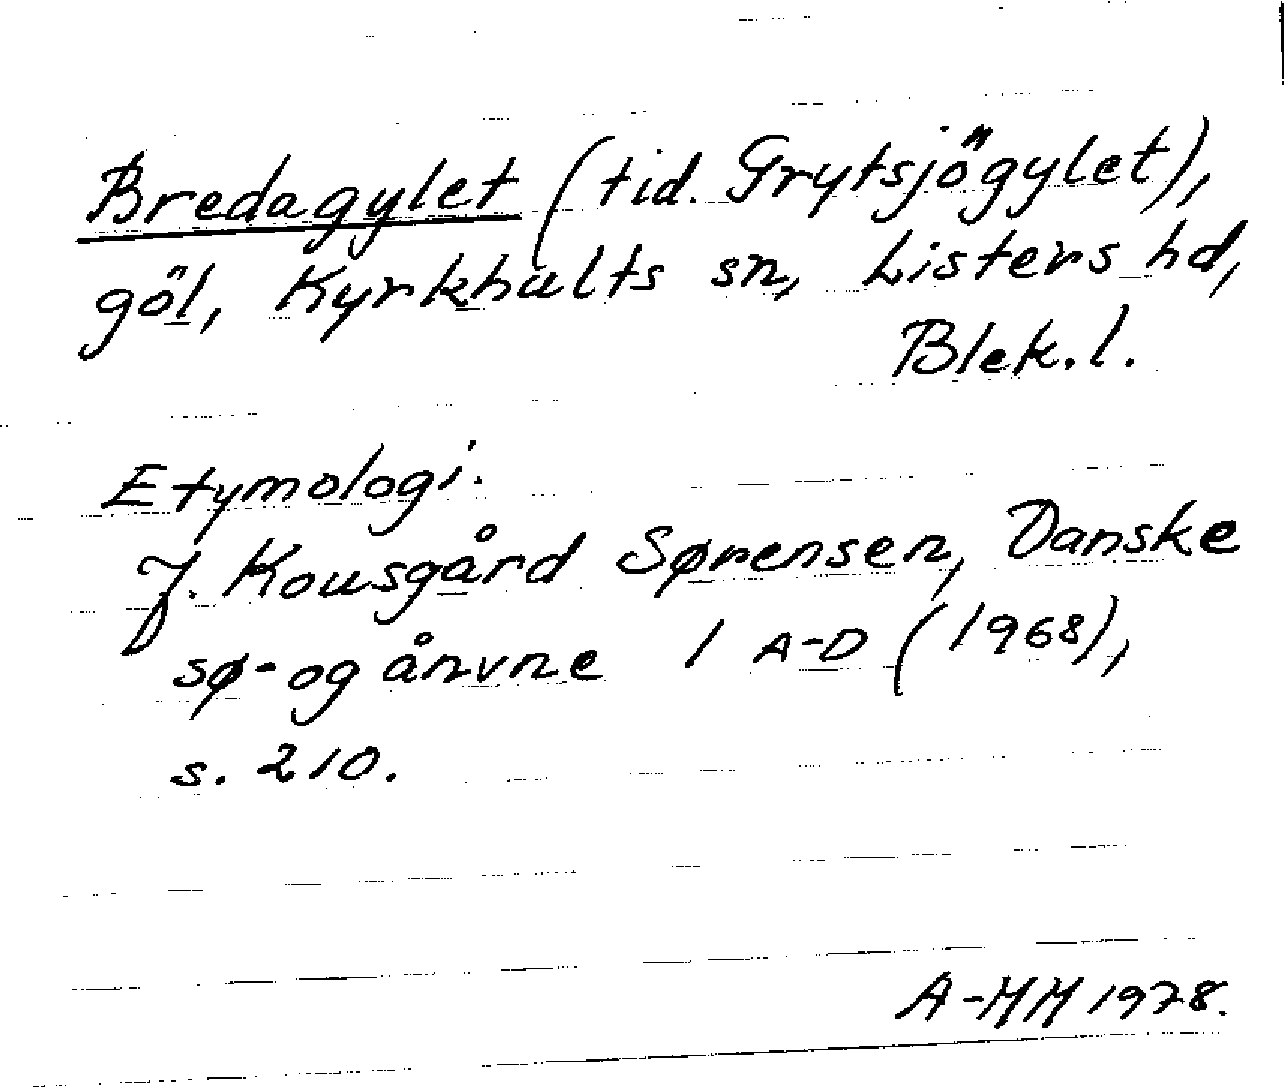 Bredagylet (tid. Grytsjögylet),
göl, Kyrkhults sn, Listers hd,
Blek. l.
Etymologi.
J. Kousgård Sørensen, Danske
sø- og ånvne 1 A-D (1968),
s. 210.
A-MM 1978.